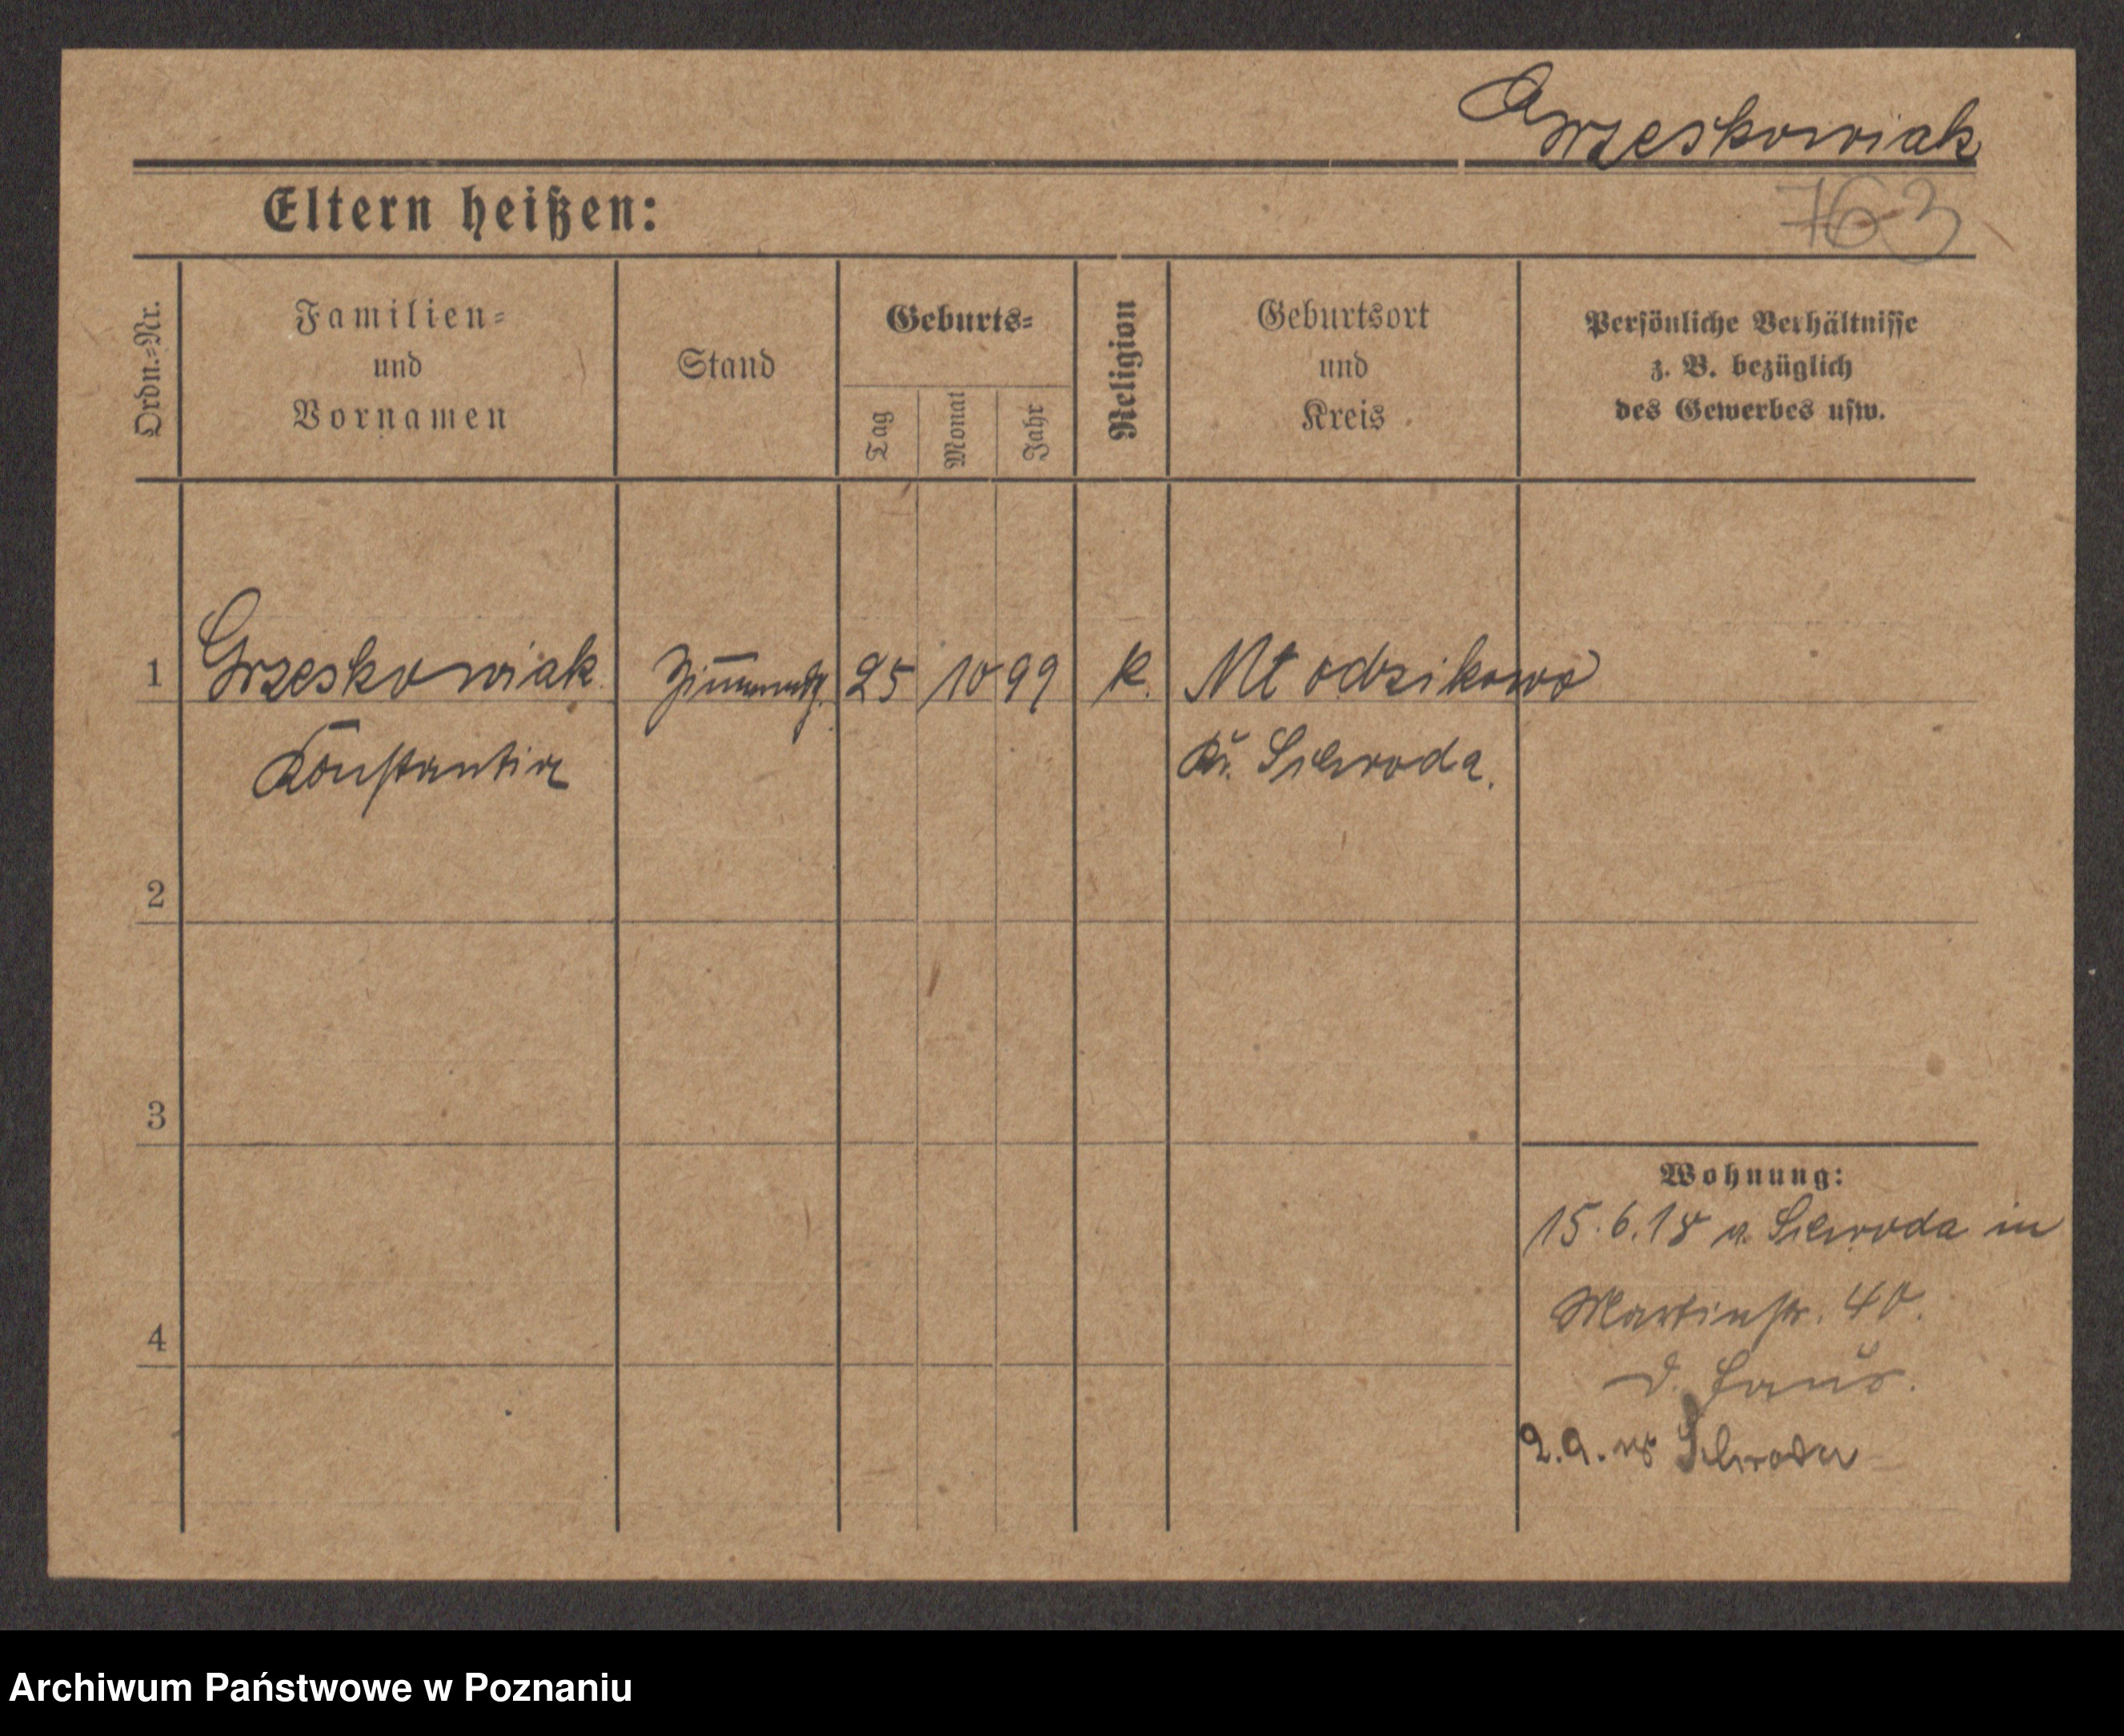 Grzeskowiak
Eltern heißen:
763
Ordn.-Nr.
Familien-
und
Vornamen
Stand
Geburts-
Tag
Monat
Jahr
Religion
Geburtsort
und
Kreis
Persönliche Verhältnisse
z. B. bezüglich
des Gewerbes usw.
1 Grzeskowiak 25 10 99 k. Mlodzikowo
Konstantin Kr. Schroda.
2
3
Wohnung:
15.6.18 a. Schroda in
Martinstr. 40.
4
2.9.18 Schroda
Archiwum Państwowe w Poznaniu